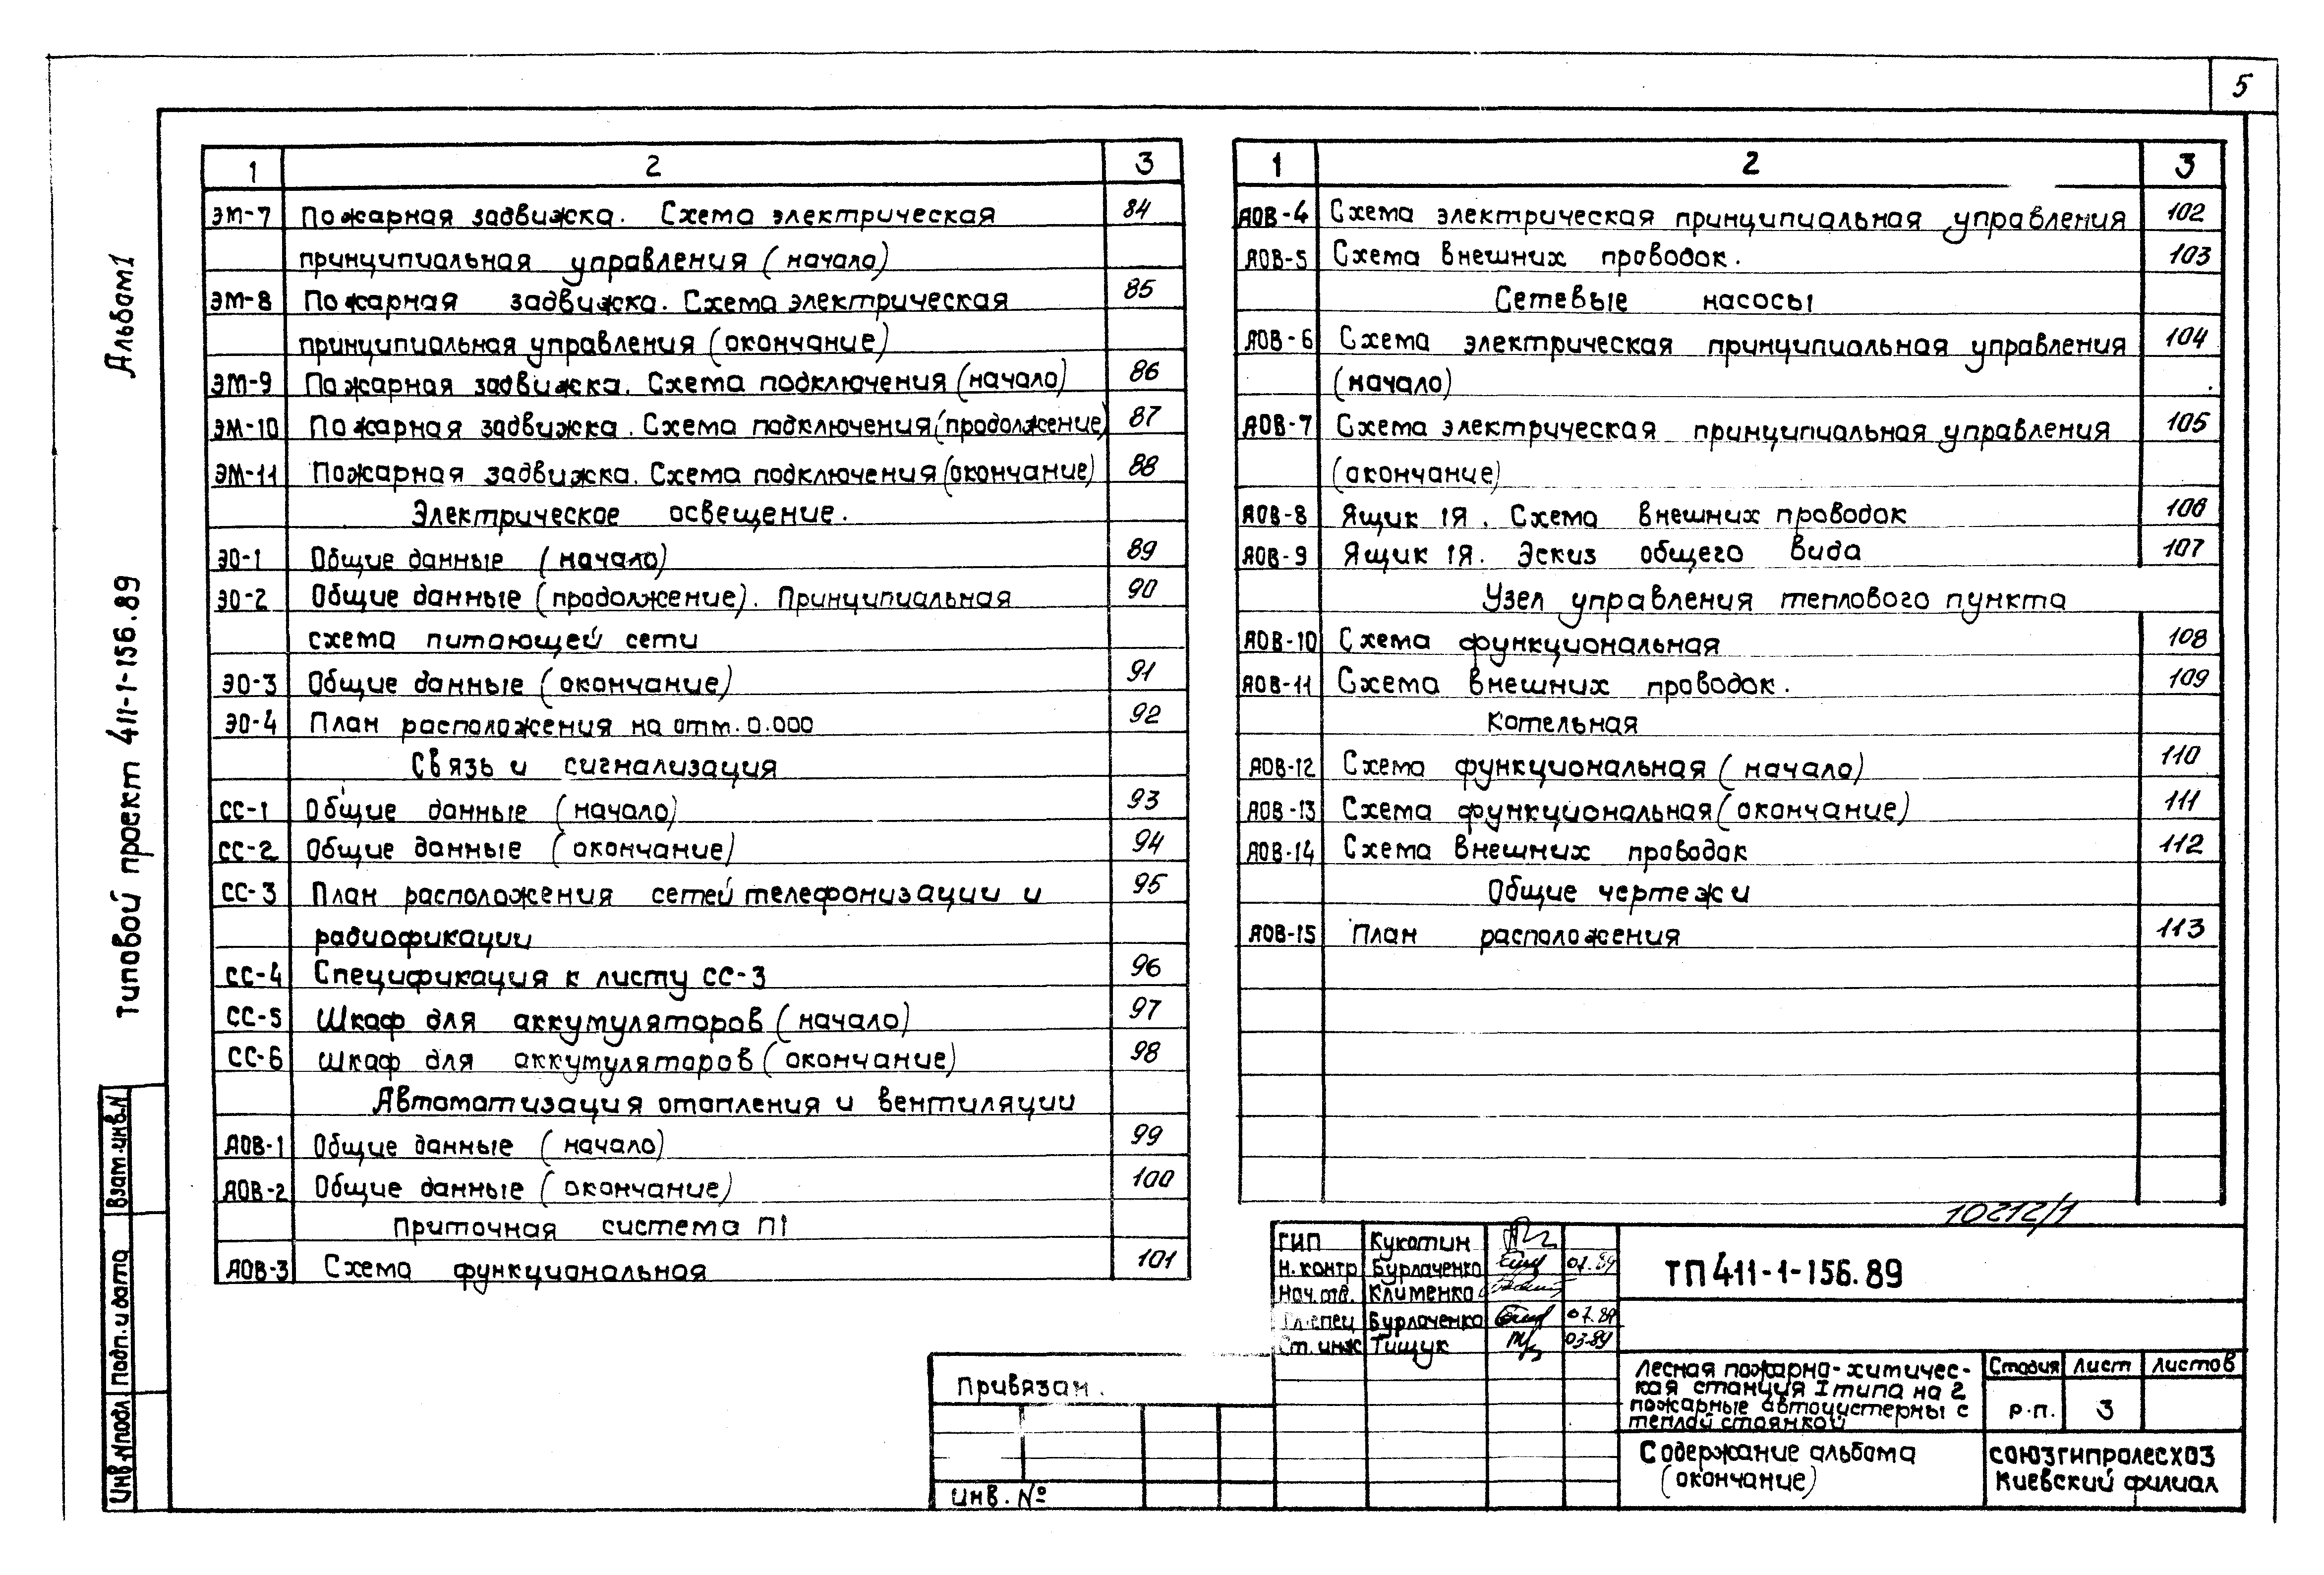 5
Альбом 1
Типовой проект 411-1-156.89
Взам.инв.N
Подп. и дата
Инв.N подл
1 2 3
ЭМ-7 Пожарная задвижка. Схема электрическая 84
принципиальная управления (начало)
ЭМ-8 Пожарная задвижка. Схема электрическая 85
принципиальная управления (окончание)
ЭМ-9 Пожарная задвижка. Схема подключения (начало) 86
ЭМ-10 Пожарная задвижка. Схема подключения (продолжение) 87
ЭМ-11 Пожарная задвижка. Схема подключения (окончание) 88
Электрическое освещение.
ЭО-1 Общие данные (начало) 89
ЭО-2 Общие данные (продолжение). Принципиальная 90
схема питающей сети
ЭО-3 Общие данные (окончание) 91
ЭО-4 План расположения на отм. 0.000 92
Связь и сигнализация
СС-1 Общие данные (начало) 93
СС-2 Общие данные (окончание) 94
СС-3 План расположения сетей телефонизации и 95
радиофикации
СС-4 Спецификация к листу СС-3 96
СС-5 Шкаф для аккумуляторов (начало) 97
СС-6 Шкаф для аккумуляторов (окончание) 98
Автоматизация отопления и вентиляции
АОВ-1 Общие данные (начало) 99
АОВ-2 Общие данные (окончание) 100
Приточная система П1
АОВ-3 Схема функциональная 101
1 2 3
АОВ-4 Схема электрическая принципиальная управления 102
АОВ-5 Схема внешних проводок. 103
Сетевые насосы
АОВ-6 Схема электрическая принципиальная управления 104
(начало)
АОВ-7 Схема электрическая принципиальная управления 105
(окончание)
АОВ-8 Ящик 1Я. Схема внешних проводок 106
АОВ-9 Ящик 1Я. Эскиз общего вида 107
Узел управления теплового пункта
АОВ-10 Схема функциональная 108
АОВ-11 Схема внешних проводок. 109
Котельная
АОВ-12 Схема функциональная (начало) 110
АОВ-13 Схема функциональная (окончание) 111
АОВ-14 Схема внешних проводок 112
Общие чертежи
АОВ-15 План расположения 113
10212/1
ГИП Кукотин
Н. контр Бурлаченко 07.89
Нач. отв. Клименко
Гл. спец Бурлаченко 07.89
Ст. инж Тищук 03.89
ТП 411-1-156.89
Лесная пожарно-химичес-
кая станция I типа на 2
пожарные автоцистерны с
теплой стоянкой
Стадия Лист Листов
р.п. 3
Содержание альбома
(окончание)
СОЮЗГИПРОЛЕСХОЗ
Киевский филиал
Привязан.
Инв. №